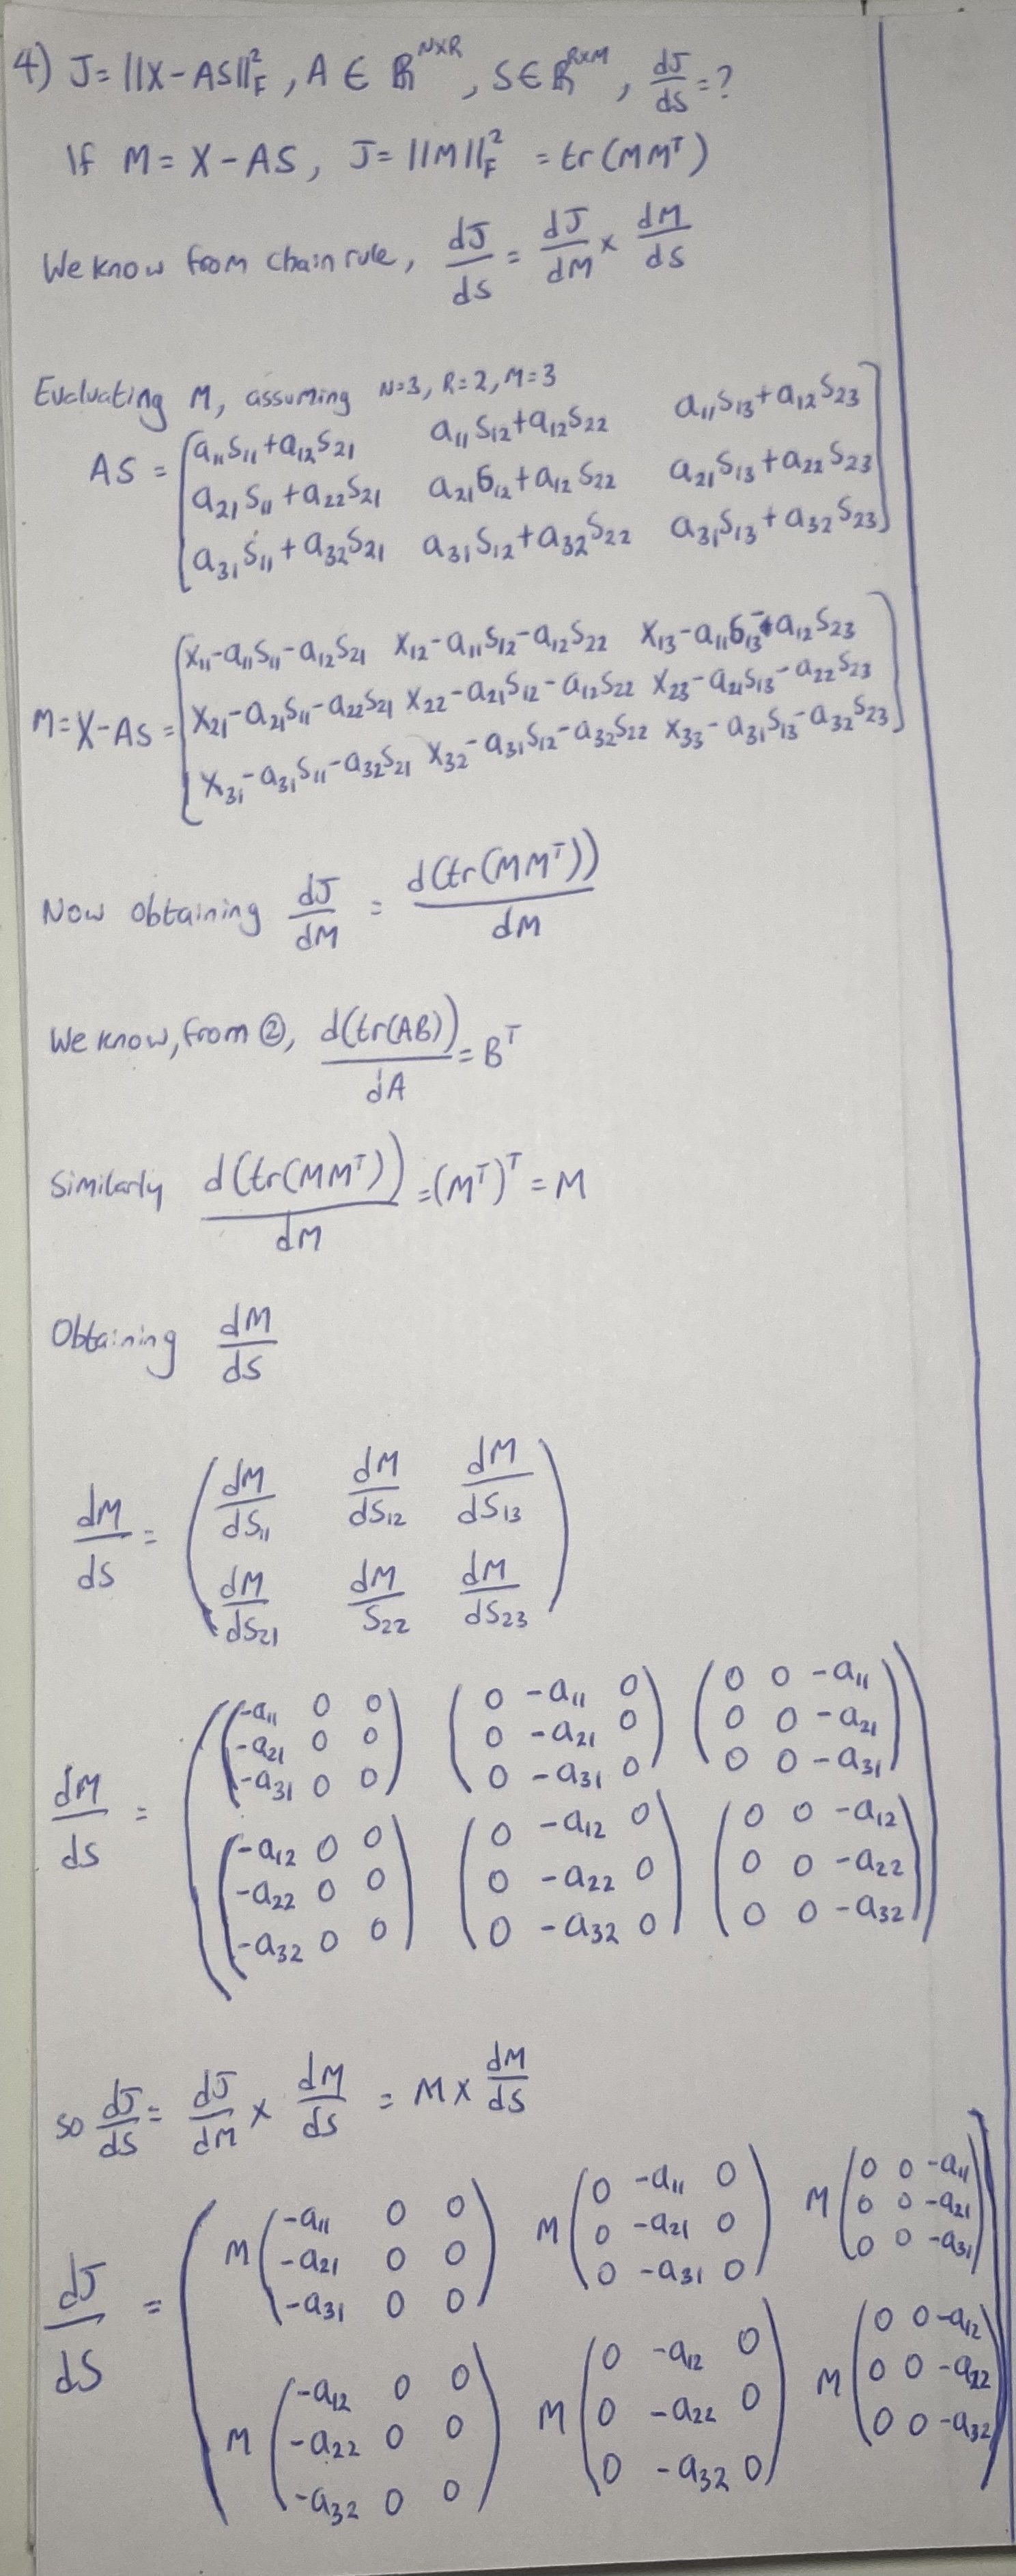 4) J = ||X-AS||²_F , A ∈ ℝ^{N×R} , S ∈ ℝ^{R×M} , dJ/dS = ?
If M = X - AS, J = ||M||²_F = tr(MMᵀ)
We know from chain rule, dJ/dS = dJ/dM × dM/dS
Evaluating M, assuming N=3, R=2, M=3
AS = [a₁₁s₁₁+a₁₂s₂₁ a₁₁s₁₂+a₁₂s₂₂ a₁₁s₁₃+a₁₂s₂₃
a₂₁s₁₁+a₂₂s₂₁ a₂₁s₁₂+a₁₂s₂₂ a₂₁s₁₃+a₂₂s₂₃
a₃₁s₁₁+a₃₂s₂₁ a₃₁s₁₂+a₃₂s₂₂ a₃₁s₁₃+a₃₂s₂₃]
M=X-AS = [x₁₁-a₁₁s₁₁-a₁₂s₂₁ x₁₂-a₁₁s₁₂-a₁₂s₂₂ x₁₃-a₁₁s₁₃-a₁₂s₂₃
x₂₁-a₂₁s₁₁-a₂₂s₂₁ x₂₂-a₂₁s₁₂-a₁₂s₂₂ x₂₃-a₂₁s₁₃-a₂₂s₂₃
x₃₁-a₃₁s₁₁-a₃₂s₂₁ x₃₂-a₃₁s₁₂-a₃₂s₂₂ x₃₃-a₃₁s₁₃-a₃₂s₂₃]
Now obtaining dJ/dM = d(tr(MMᵀ))/dM
We know, from ②, d(tr(AB))/dA = Bᵀ
Similarly d(tr(MMᵀ))/dM = (Mᵀ)ᵀ = M
Obtaining dM/dS
dM/dS = (dM/dS₁₁ dM/dS₁₂ dM/dS₁₃
dM/dS₂₁ dM/S₂₂ dM/dS₂₃)
dM/dS = ((-a₁₁ 0 0 (0 -a₁₁ 0 (0 0 -a₁₁
-a₂₁ 0 0 0 -a₂₁ 0 0 0 -a₂₁
-a₃₁ 0 0) 0 -a₃₁ 0) 0 0 -a₃₁)
(-a₁₂ 0 0 (0 -a₁₂ 0 (0 0 -a₁₂
-a₂₂ 0 0 0 -a₂₂ 0 0 0 -a₂₂
-a₃₂ 0 0) 0 -a₃₂ 0) 0 0 -a₃₂))
so dJ/dS = dJ/dM × dM/dS = M × dM/dS
dJ/dS = (M(-a₁₁ 0 0 M(0 -a₁₁ 0 M(0 0 -a₁₁
-a₂₁ 0 0 0 -a₂₁ 0 0 0 -a₂₁
-a₃₁ 0 0) 0 -a₃₁ 0) 0 0 -a₃₁)
M(-a₁₂ 0 0 M(0 -a₁₂ 0 M(0 0 -a₁₂
-a₂₂ 0 0 0 -a₂₂ 0 0 0 -a₂₂
-a₃₂ 0 0) 0 -a₃₂ 0) 0 0 -a₃₂))